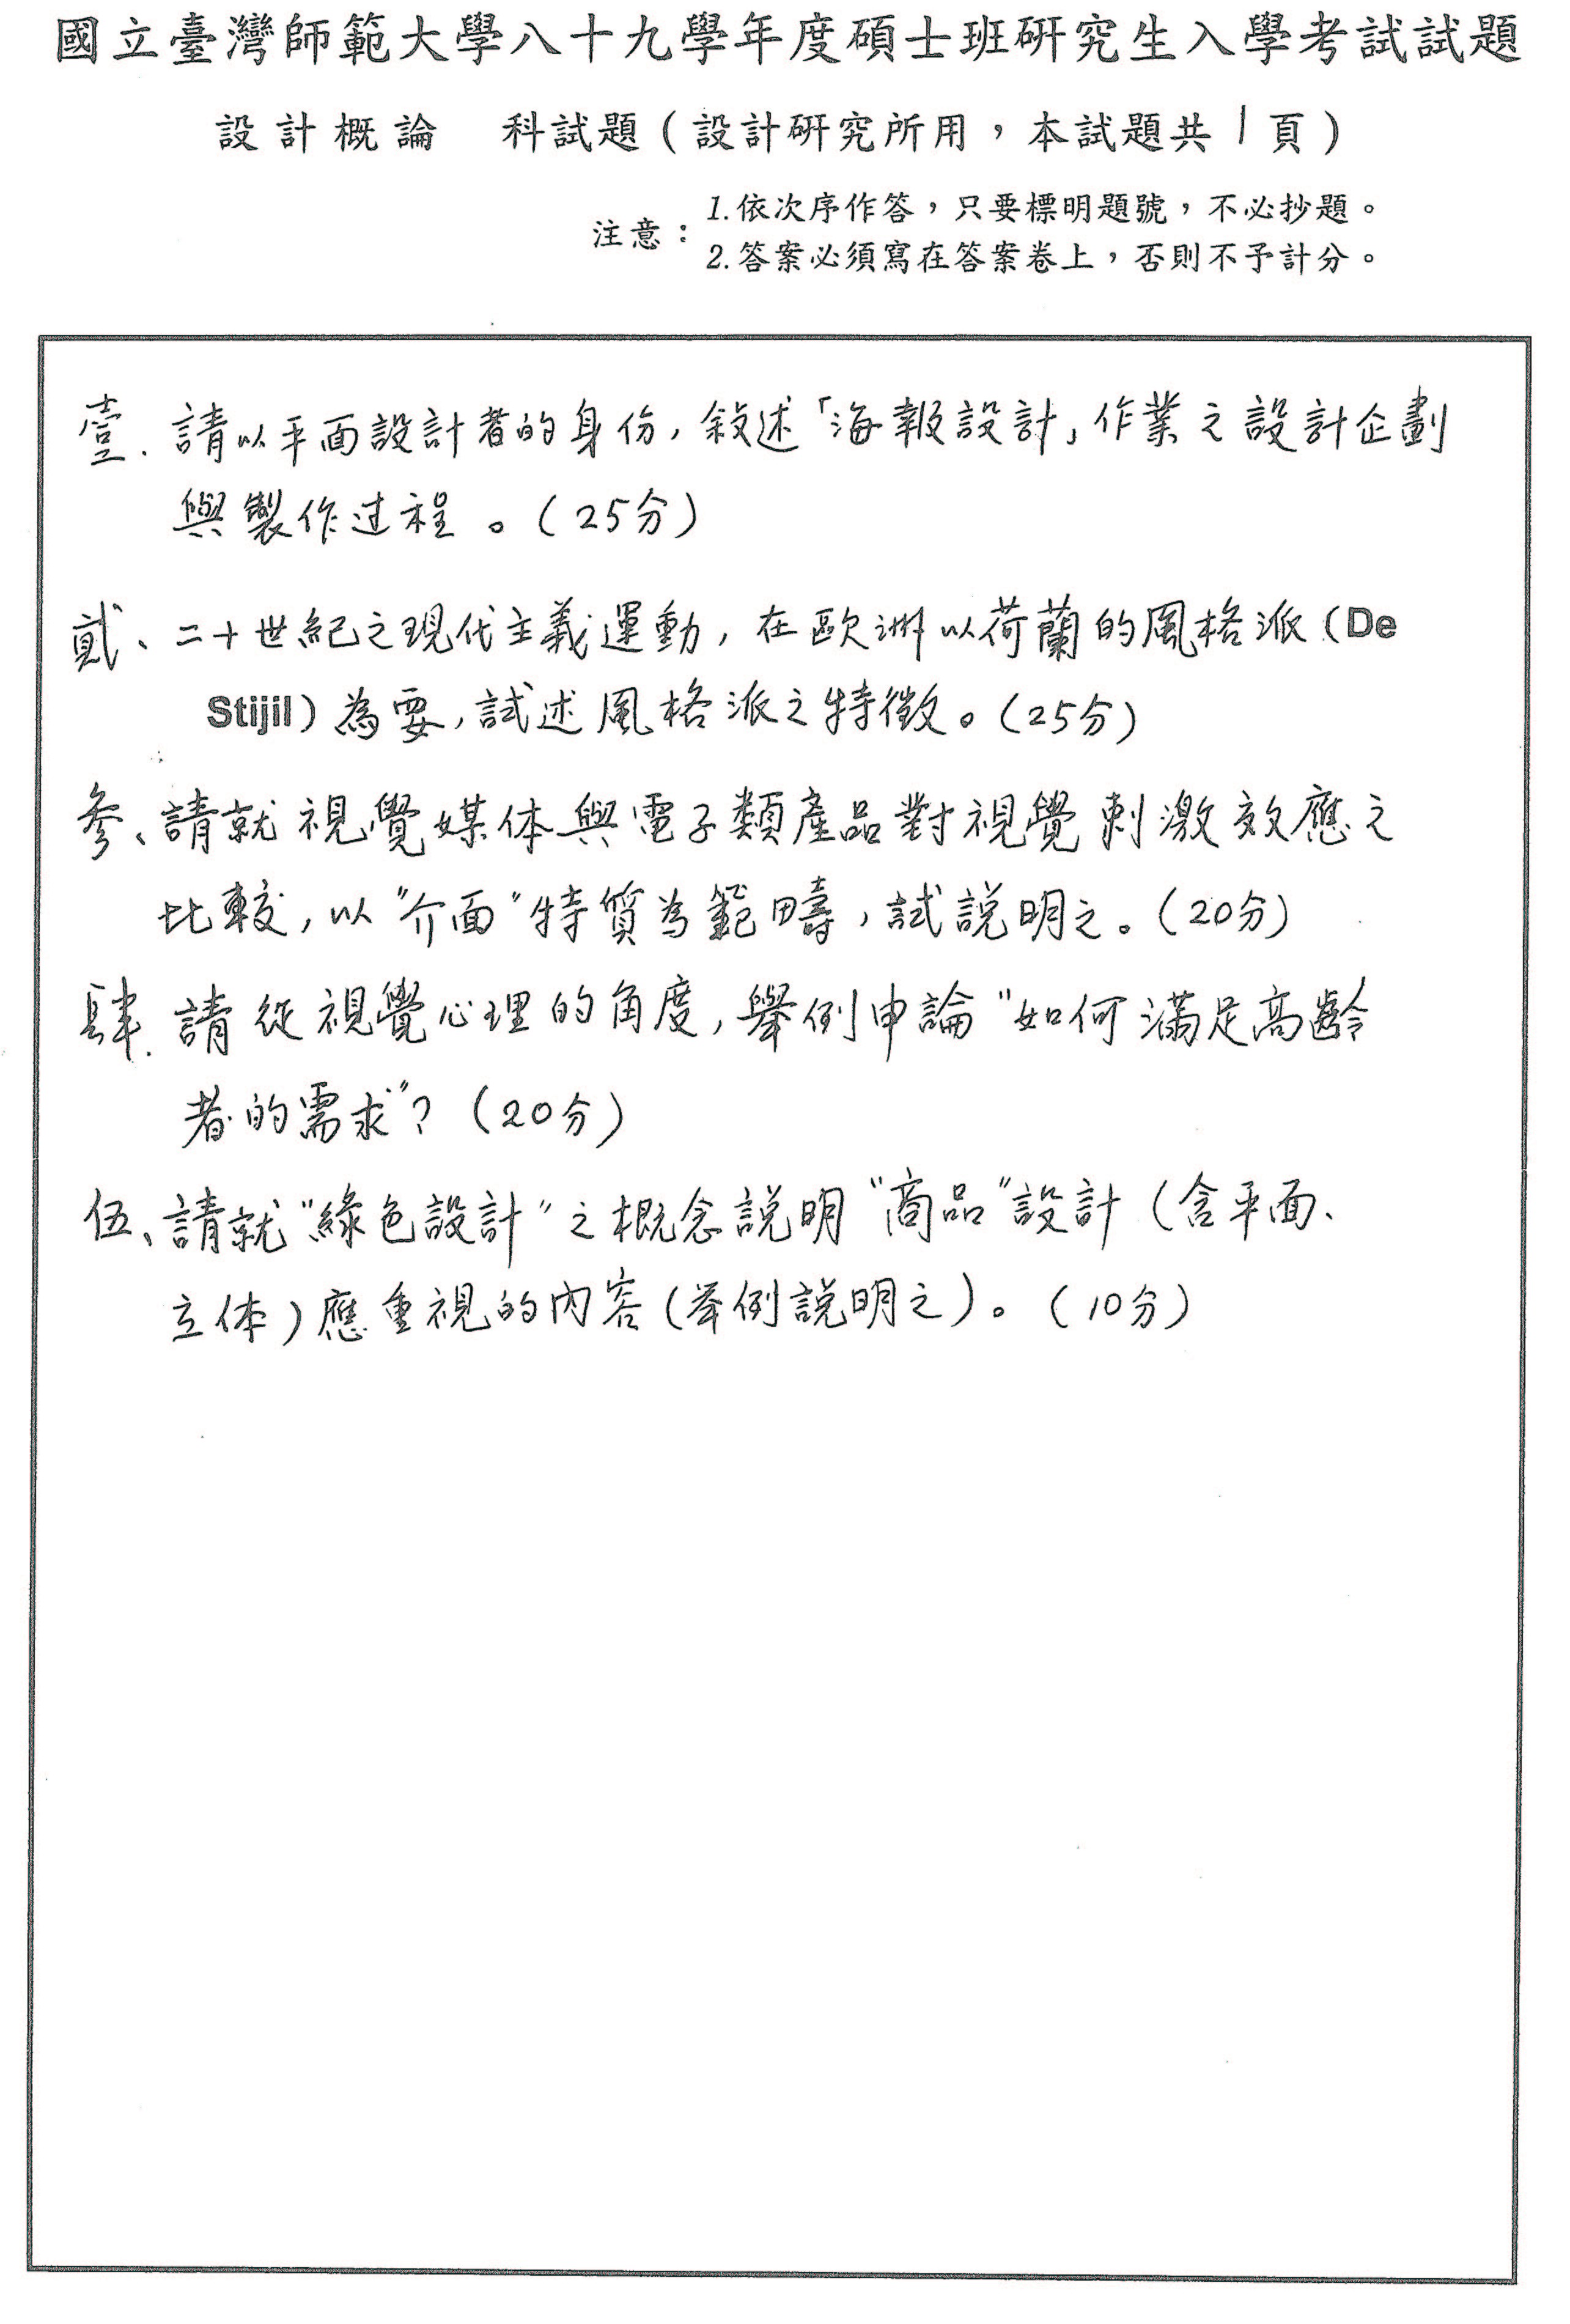 國立臺灣師範大學八十九學年度碩士班研究生入學考試試題
設計概論 科試題(設計研究所用,本試題共1頁)
注意:
1.依次序作答,只要標明題號,不必抄題。
2.答案必須寫在答案卷上,否則不予計分。
壹. 請以平面設計者的身份,敍述「海報設計」作業之設計企劃
與製作过程。(25分)
貳、二十世紀之現代主義運動,在歐洲以荷蘭的風格派(De
Stijil)為要,試述風格派之特徵。(25分)
參、請就視覺媒体與電子類產品對視覺刺激效應之
比較,以"介面"特質為範疇,試說明之。(20分)
肆. 請從視覺心理的角度,舉例申論"如何滿足高齡
者的需求"?(20分)
伍、請就"綠色設計"之概念說明"商品"設計(含平面、
立体)應重視的內容(举例說明之)。(10分)